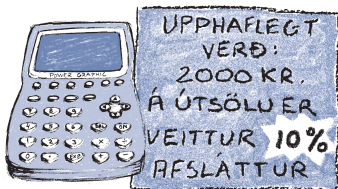 POWER GRAPHIC
UPPHAFLEGT
VERÐ:
2000 KR.
Á ÚTSÖLU ER
VEITTUR 10%
AFSLÁTTUR